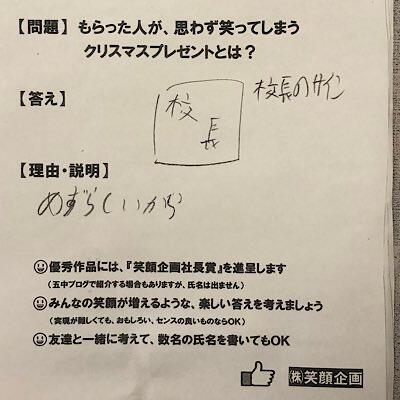 【問題】もらった人が、思わず笑ってしまう
クリスマスプレゼントとは？
【答え】
校長
校長のサイン
【理由・説明】
めずらしいから
優秀作品には、『笑顔企画社長賞』を進呈します
（五中ブログで紹介する場合もありますが、氏名は出ません）
みんなの笑顔が増えるような、楽しい答えを考えましょう
（実現が難しくても、おもしろい、センスの良いものならOK）
友達と一緒に考えて、数名の氏名を書いてもOK
㈱笑顔企画